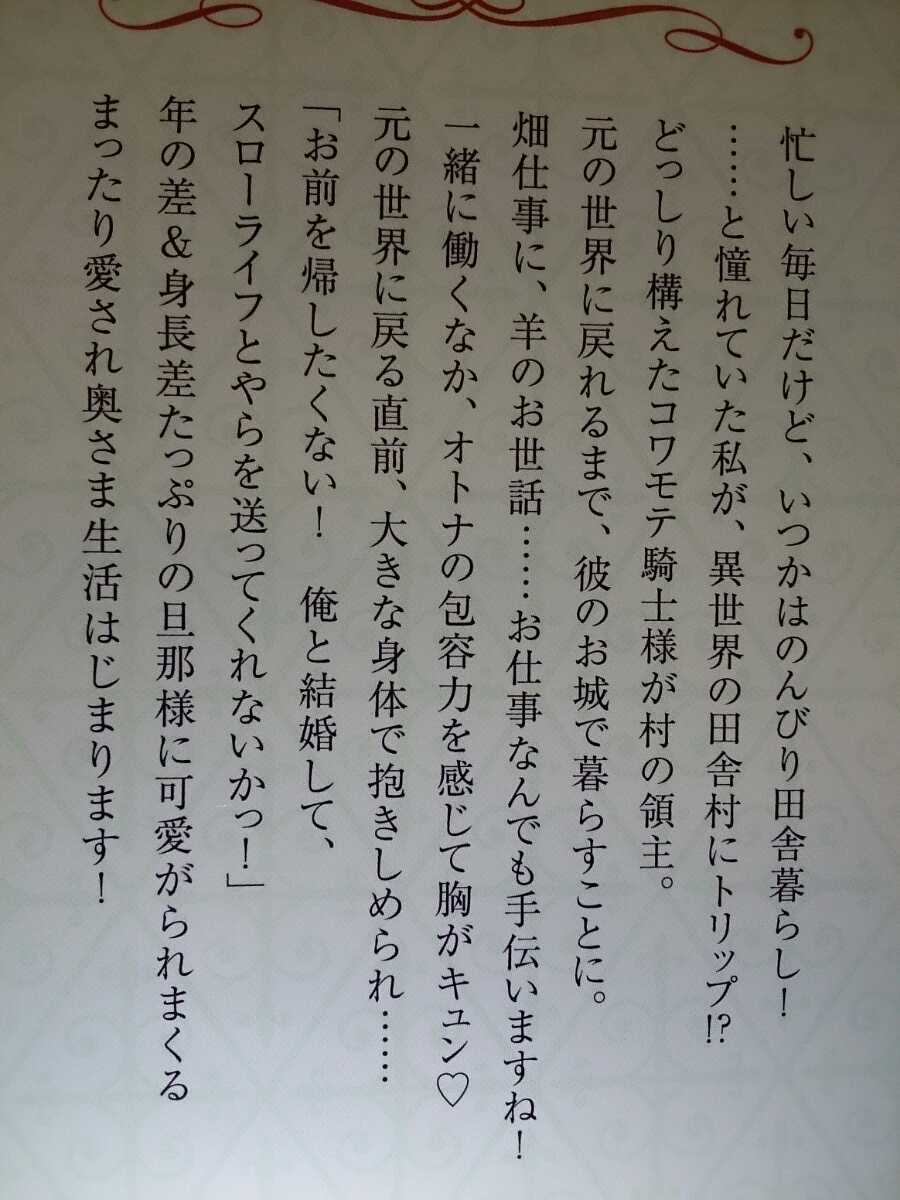 忙しい毎日だけど、いつかはのんびり田舎暮らし！
……と憧れていた私が、異世界の田舎村にトリップ!?
どっしり構えたコワモテ騎士様が村の領主。
元の世界に戻れるまで、彼のお城で暮らすことに。
畑仕事に、羊のお世話……お仕事なんでも手伝いますね！
一緒に働くなか、オトナの包容力を感じて胸がキュン♡
元の世界に戻る直前、大きな身体で抱きしめられ……
「お前を帰したくない！　俺と結婚して、
スローライフとやらを送ってくれないかっ！」
年の差＆身長差たっぷりの旦那様に可愛がられまくる
まったり愛され奥さま生活はじまります！